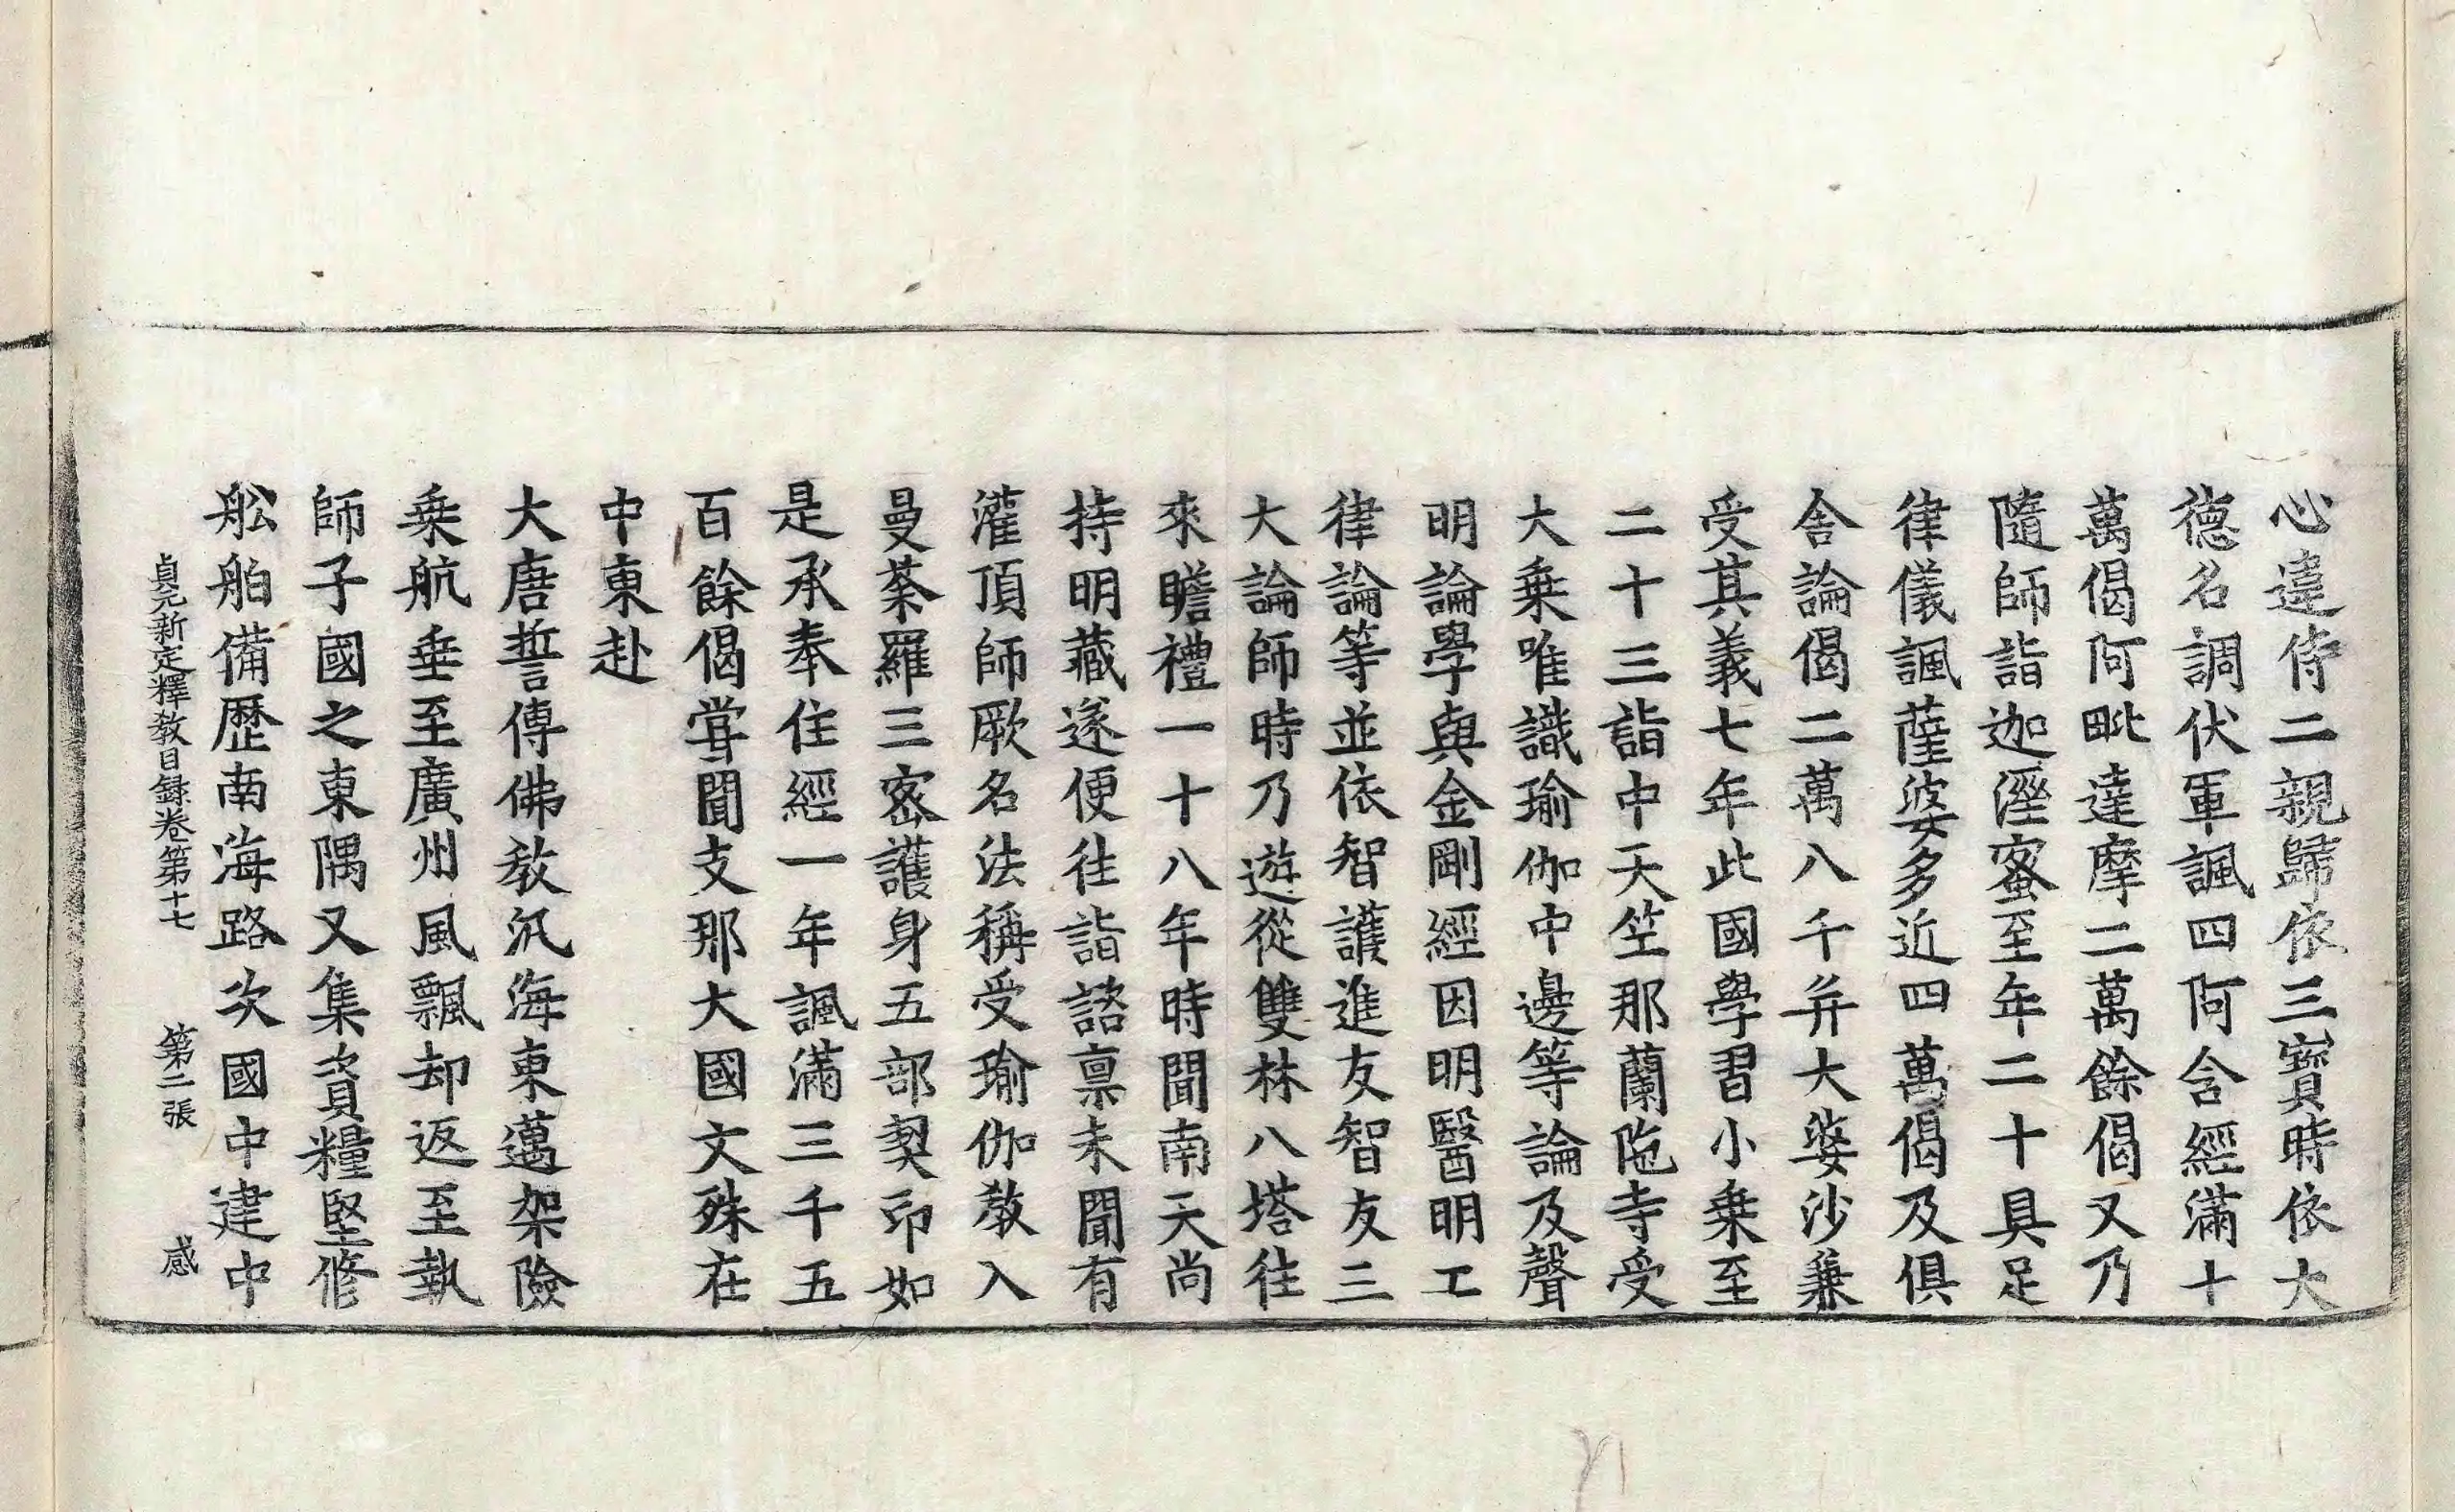 心違侍二親歸依三寶時依大
德名調伏軍諷四阿含經滿十
萬偈阿毗達摩二萬餘偈又乃
隨師詣迦濕蜜至年二十具足
律儀諷薩婆多近四萬偈及俱
舍論偈二萬八千并大婆沙兼
受其義七年此國學習小乗至
二十三詣中天竺那蘭陁寺受
大乗唯識瑜伽中邊等論及聲
明論學與金剛經因明醫明工
律論等並依智護進友智友三
大論師時乃遊從雙林八塔往
來瞻禮一十八年時聞南天尚
持明藏遂便往詣諮禀未聞有
灌頂師厥名法稱受瑜伽教入
曼荼羅三密護身五部契印如
是承奉住經一年諷滿三千五
百餘偈甞聞支那大國文殊在
中東赴
大唐誓傳佛教汎海東邁架險
乗航垂至廣州風飄却返至執
師子國之東隅又集資糧堅修
舩舶備歷南海路次國中建中
貞元新定釋教目録卷第十七 第二張 感